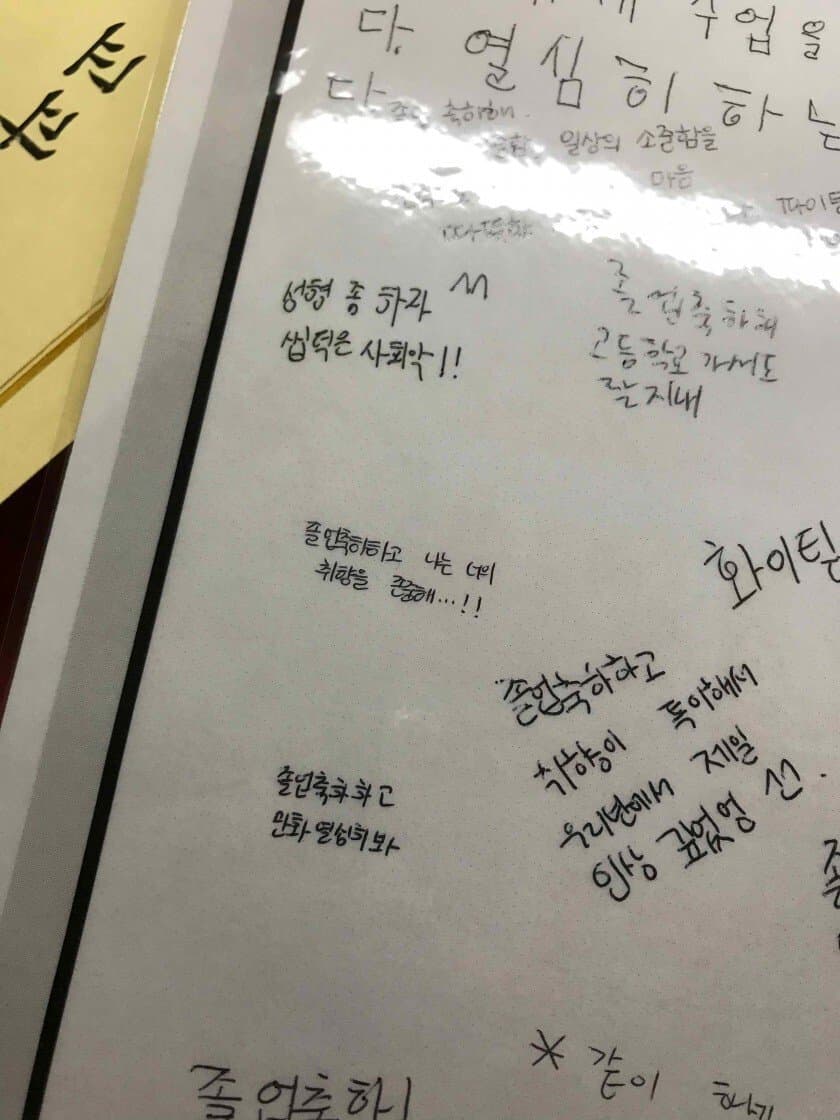 수업을
다. 열심히 하는
다.
축하해.
일상의 소중함을
마음
성형 좀 하라
씹덕은 사회악!!
졸업축하해
고등학교 가서도
잘 지내
졸업축하하고 나는 너의
취향을 존중해...!!
화이팅
졸업축하하고
취향이 특이해서
우리반에서 제일
인상 깊었엉
졸업축하하고
만화 열심히봐
졸업축하
* 같이